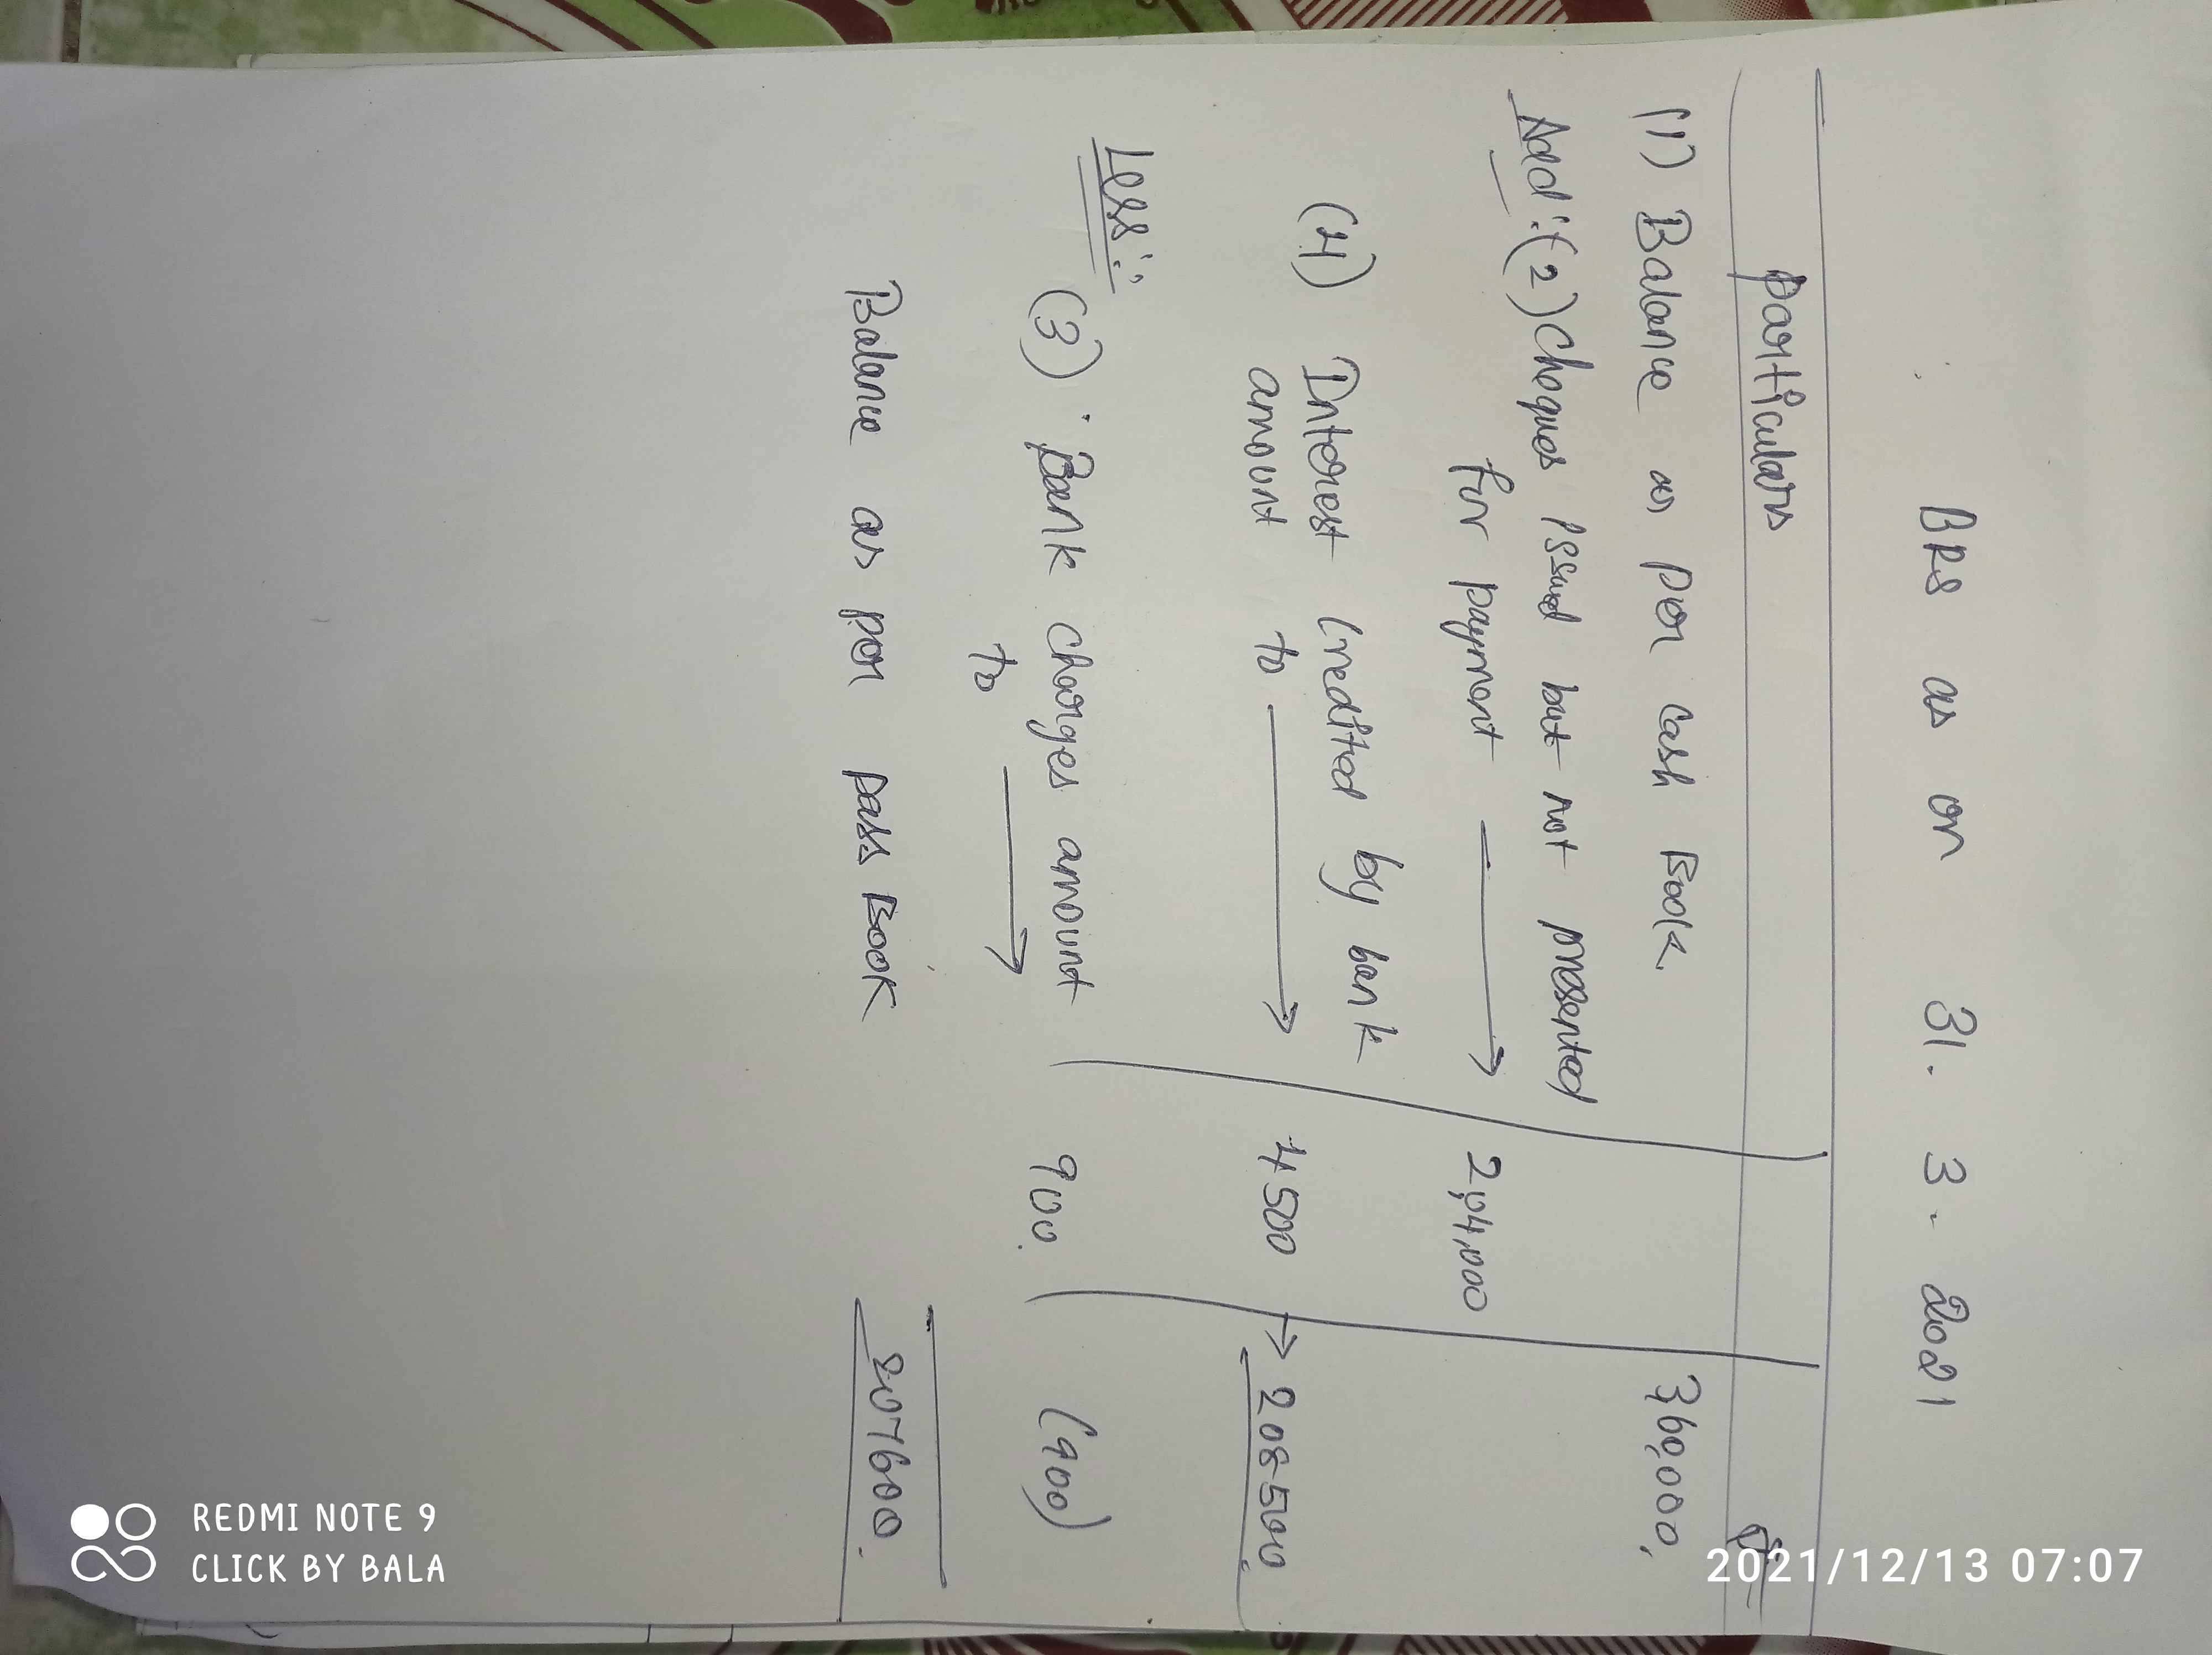 BRS as on 31.3.2021
particulars ₹
(1) Balance as per cash Book. 360,000.
Add:(2) cheques issued but not presented
for payment → 2,04,000
(4) Interest credited by bank
amount to → 4500 → 208500.
Less:
(3) Bank charges amount
to → 900. (900)
Balance as per pass Book 207600.
REDMI NOTE 9
CLICK BY BALA
2021/12/13 07:07